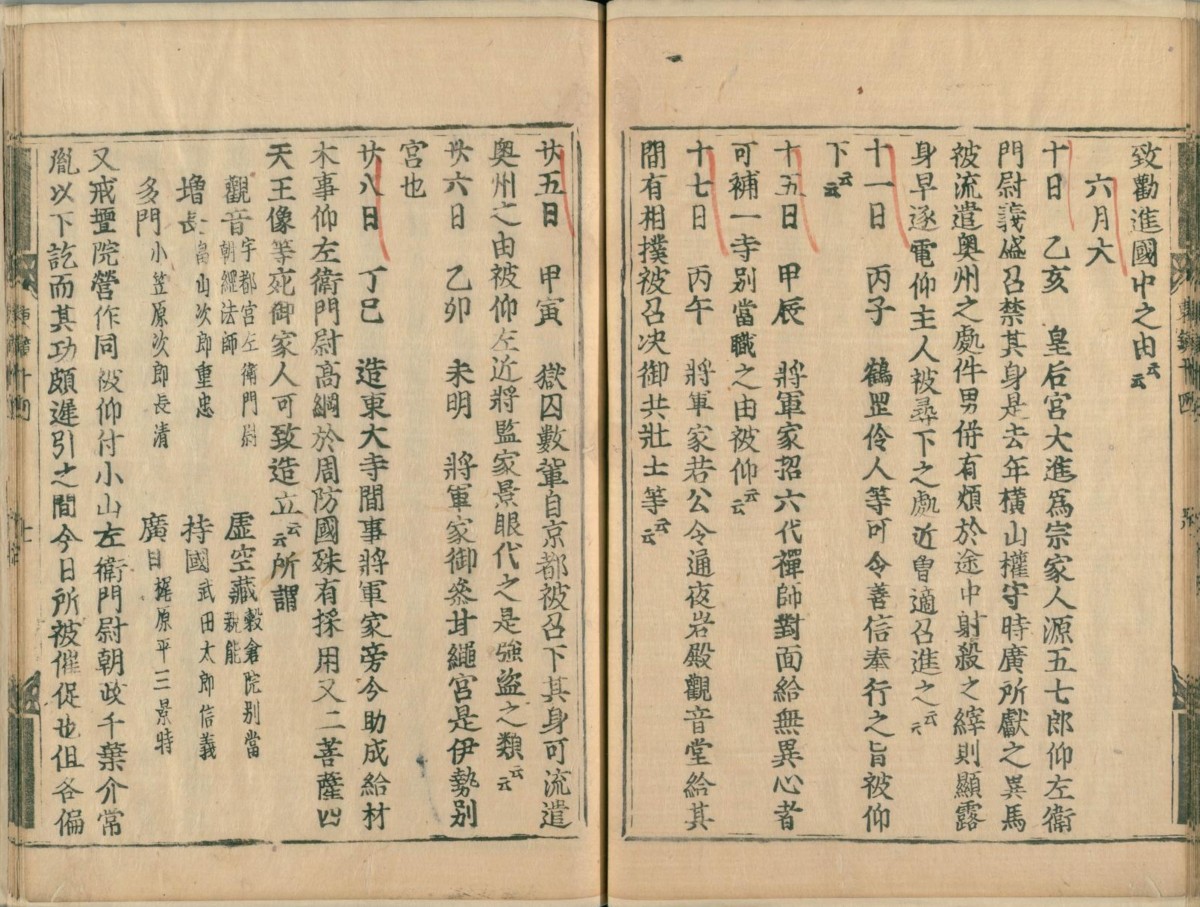 致勸進國中之由云云
六月大
十日 乙亥 皇后宮大進爲宗家人源五七郎仰左衛
門尉義盛召禁其身是去年横山權守時廣所獻之異馬
被流遣奥州之處件男併有煩於途中射殺之繹則顯露
身早逐電仰主人被尋下之處近曽適召進之云云
十一日 丙子 鶴罡伶人等可令善信奉行之旨被仰
下云云
十五日 甲辰 將軍家招六代禪師對面給無異心者
可補一寺别當職之由被仰云云
十七日 丙午 將軍家若公令通夜岩殿觀音堂給其
間有相撲被召决御共壯士等云云
廿五日 甲寅 獄囚數輩自京都被召下其身可流遣
奥州之由被仰左近將監家景眼代之是強盗之類云云
廿六日 乙卯 未明 將軍家御叅甘繩宮是伊勢别
宮也
廿八日 丁巳 造東大寺間事將軍家旁今助成給材
木事仰左衛門尉高綱於周防國殊有採用又二菩薩四
天王像等宛御家人可致造立云云所謂
觀音宇都宮左衛門尉朝綱法師 虚空藏穀倉院别當親能
増長畠山次郎重忠 持國武田太郎信義
多門小笠原次郎長清 廣目梶原平三景時
又戒壇院營作同被仰付小山左衛門尉朝政千葉介常
胤以下訖而其功頗遲引之間今日所被催促也但各偏